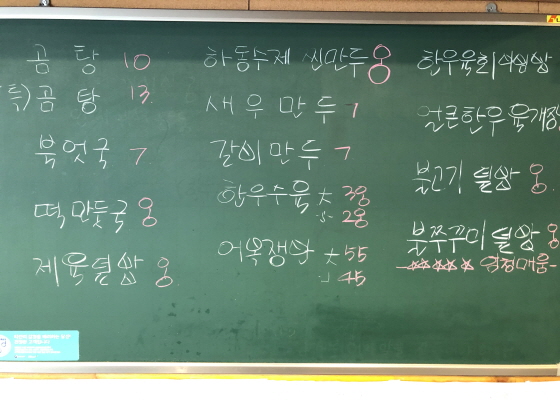 곰탕 10
특)곰탕 13
북엇국 7
떡만둣국 웅
제육덮밥 웅
하동수제 찐만두 웅
새우만두 7
갈비만두 7
한우수육 大 3웅
小 2웅
어복쟁반 大 55
小 45
한우육회비빔밥
얼큰한우육개장
불고기 덮밥 웅
불쭈꾸미덮밥 웅